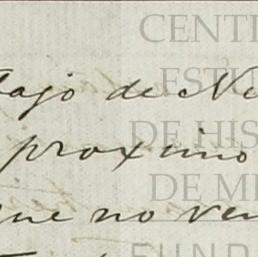 tajo de Ne
proximo
que no ven
CENT
EST
DE HIS
DE ME
FUND